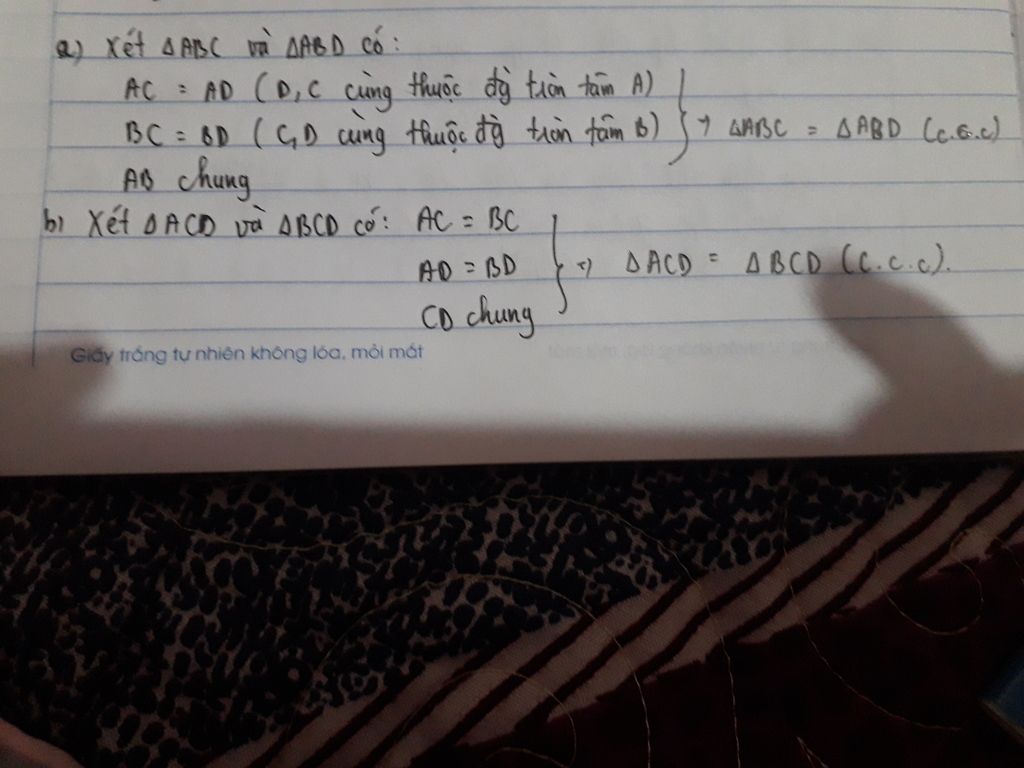 a) Xét ΔABC và ΔABD có:
AC = AD (D, C cùng thuộc đg tròn tâm A)
BC = BD (C, D cùng thuộc đg tròn tâm B) } → ΔABC = ΔABD (c.c.c)
AB chung
b) Xét ΔACD và ΔBCD có: AC = BC
AD = BD } => ΔACD = ΔBCD (c.c.c).
CD chung
Giấy trắng tự nhiên không lóa, mỏi mắt